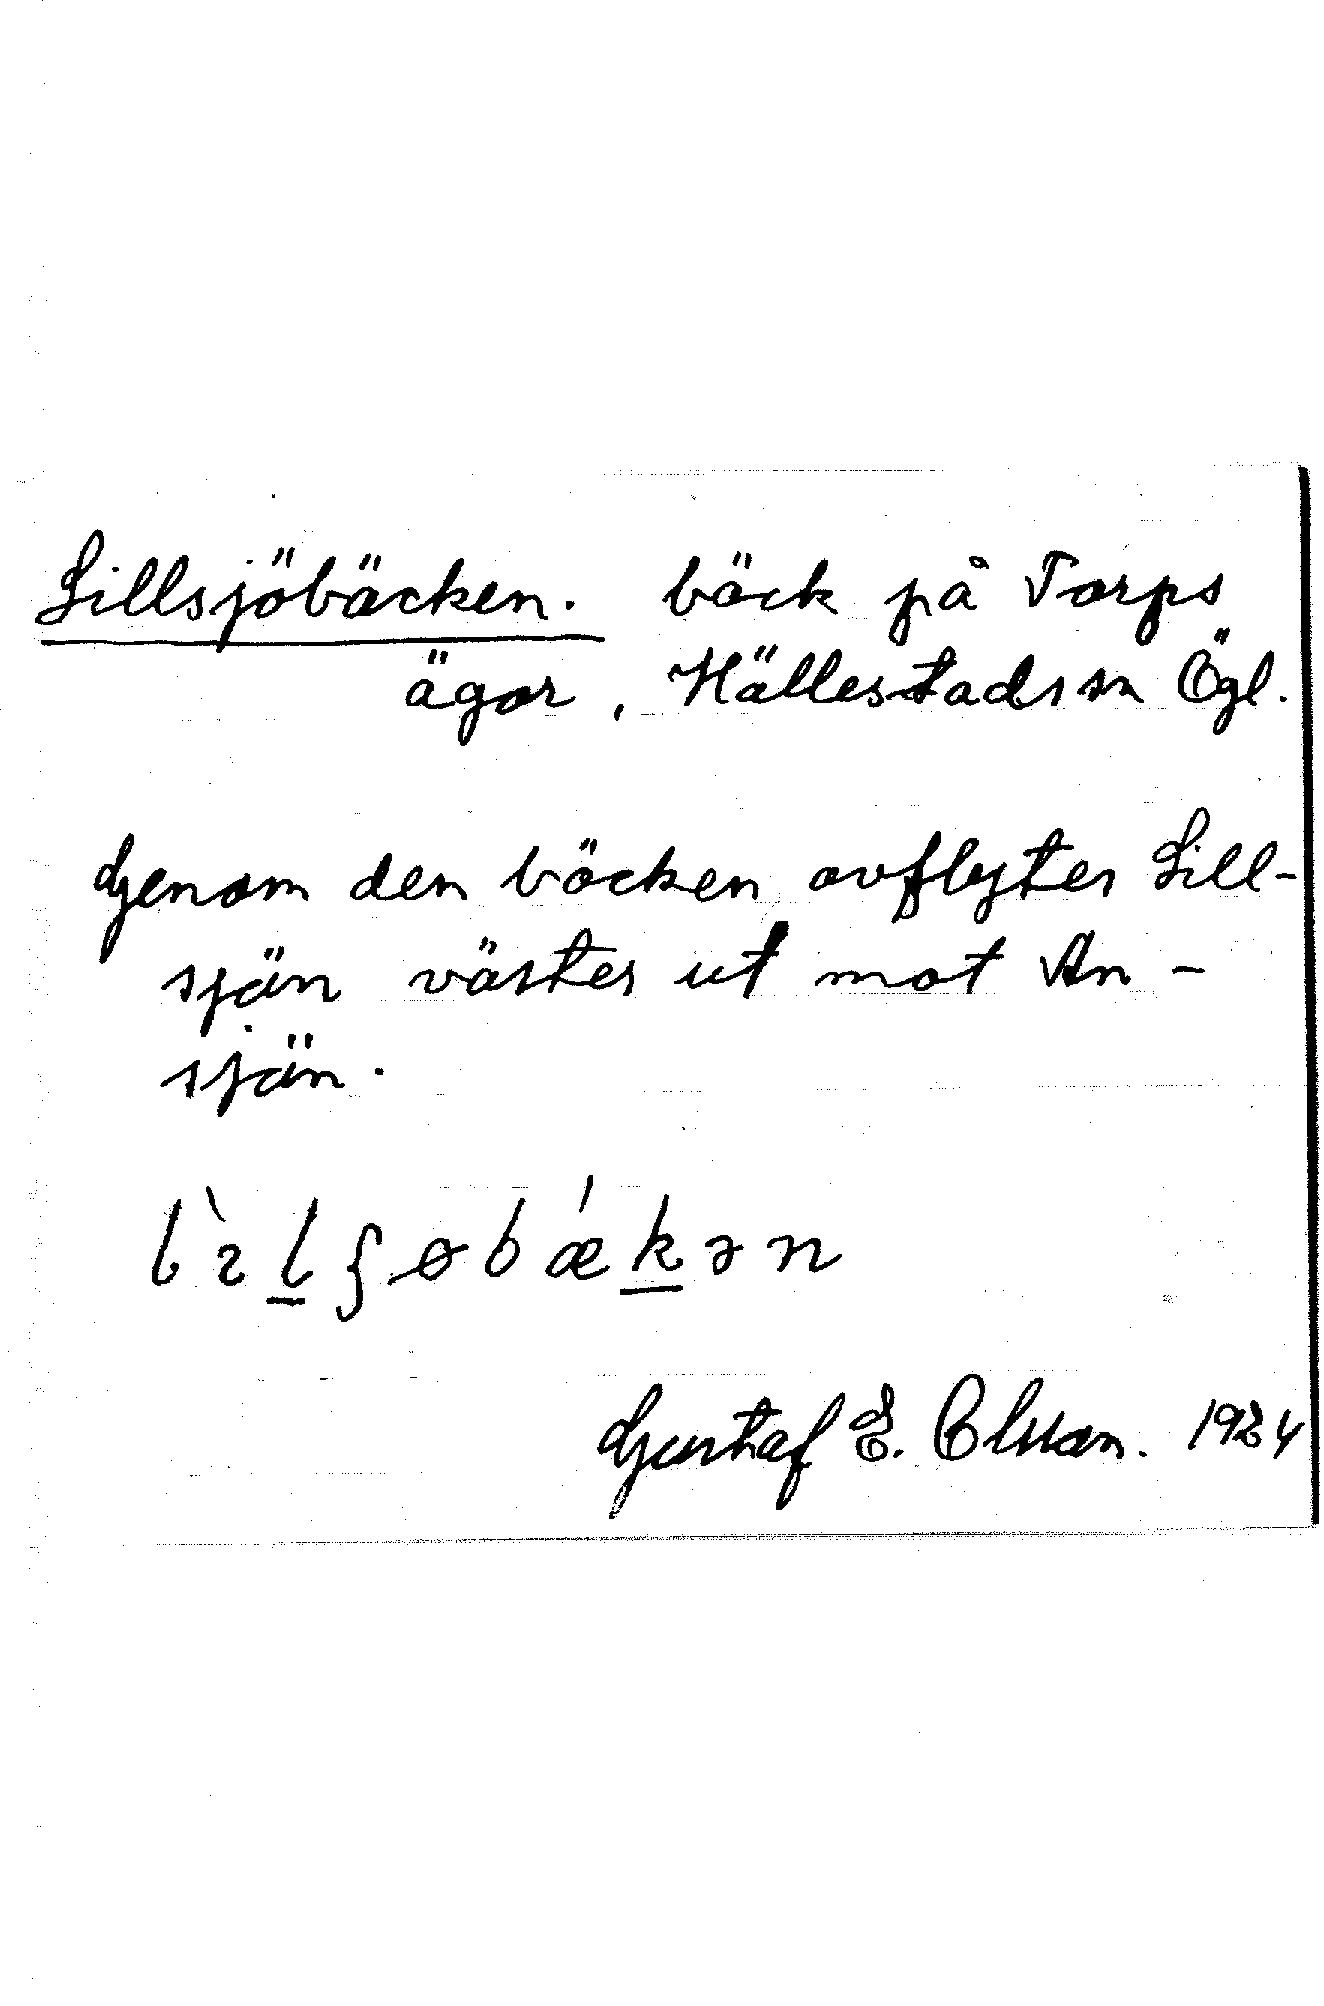 Lillsjöbäcken. bäck på Torps
ägor, Hällestads sn Ögl.
Genom den bäcken avflyter Lill-
sjön väster ut mot An-
sjön.
l̀ɪl̲ʃøbǽk̲ən
Gustaf E. Olsson. 1924